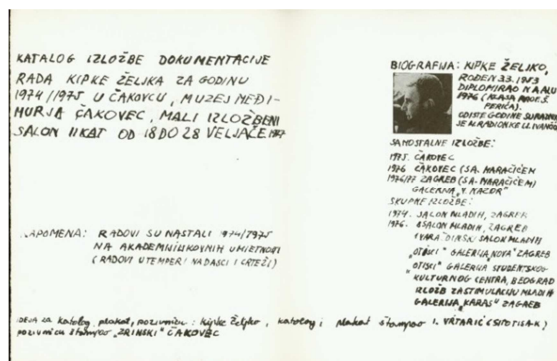 KATALOG IZLOŽBE DOKUMENTACIJE
RADA KIPKE ŽELJKA ZA GODINU
1974/1975 U ČAKOVCU, MUZEJ MEĐI-
MURJA ČAKOVEC, MALI IZLOŽBENI
SALON II KAT OD 18 DO 28 VELJAČE 1977
NAPOMENA: RADOVI SU NASTALI 1974/1975
NA AKADEMIJI LIKOVNIH UMJETNOSTI
(RADOVI U TEMPERI NA DASCI I CRTEŽI)
BIOGRAFIJA: KIPKE ŽELJKO,
ROĐEN 3.3.1953
DIPLOMIRAO NA ALU
1976 (KLASA PROF. Š.
PERIĆA).
OD ISTE GODINE SURADNIK
SAMOSTALNE IZLOŽBE:
1975. ČAKOVEC
1976 ČAKOVEC (SA. MARAČIĆEM
1976/77 ZAGREB (SA. MARAČIĆEM)
GALERIJA „V. NAZOR"
SKUPNE IZLOŽBE:
1974. SALON MLADIH, ZAGREB
1976. 8 SALON MLADIH, ZAGREB
I VARAŽDINSKI SALON MLADIH
„OTISCI" GALERIJA „NOVA" ZAGREB
„OTISCI" GALERIJA STUDENTSKOG
KULTURNOG CENTRA, BEOGRAD
IZLOŽB ZA STIMULACIJU MLADIH
GALERIJA „KARAS" ZAGREB
ideja za katalog, plakat, pozivnicu: Kipke Željko, katalog i plakat štampao I. VRTARIĆ (SITOTISAK)
pozivnicu štampao „ZRINSKI" ČAKOVEC